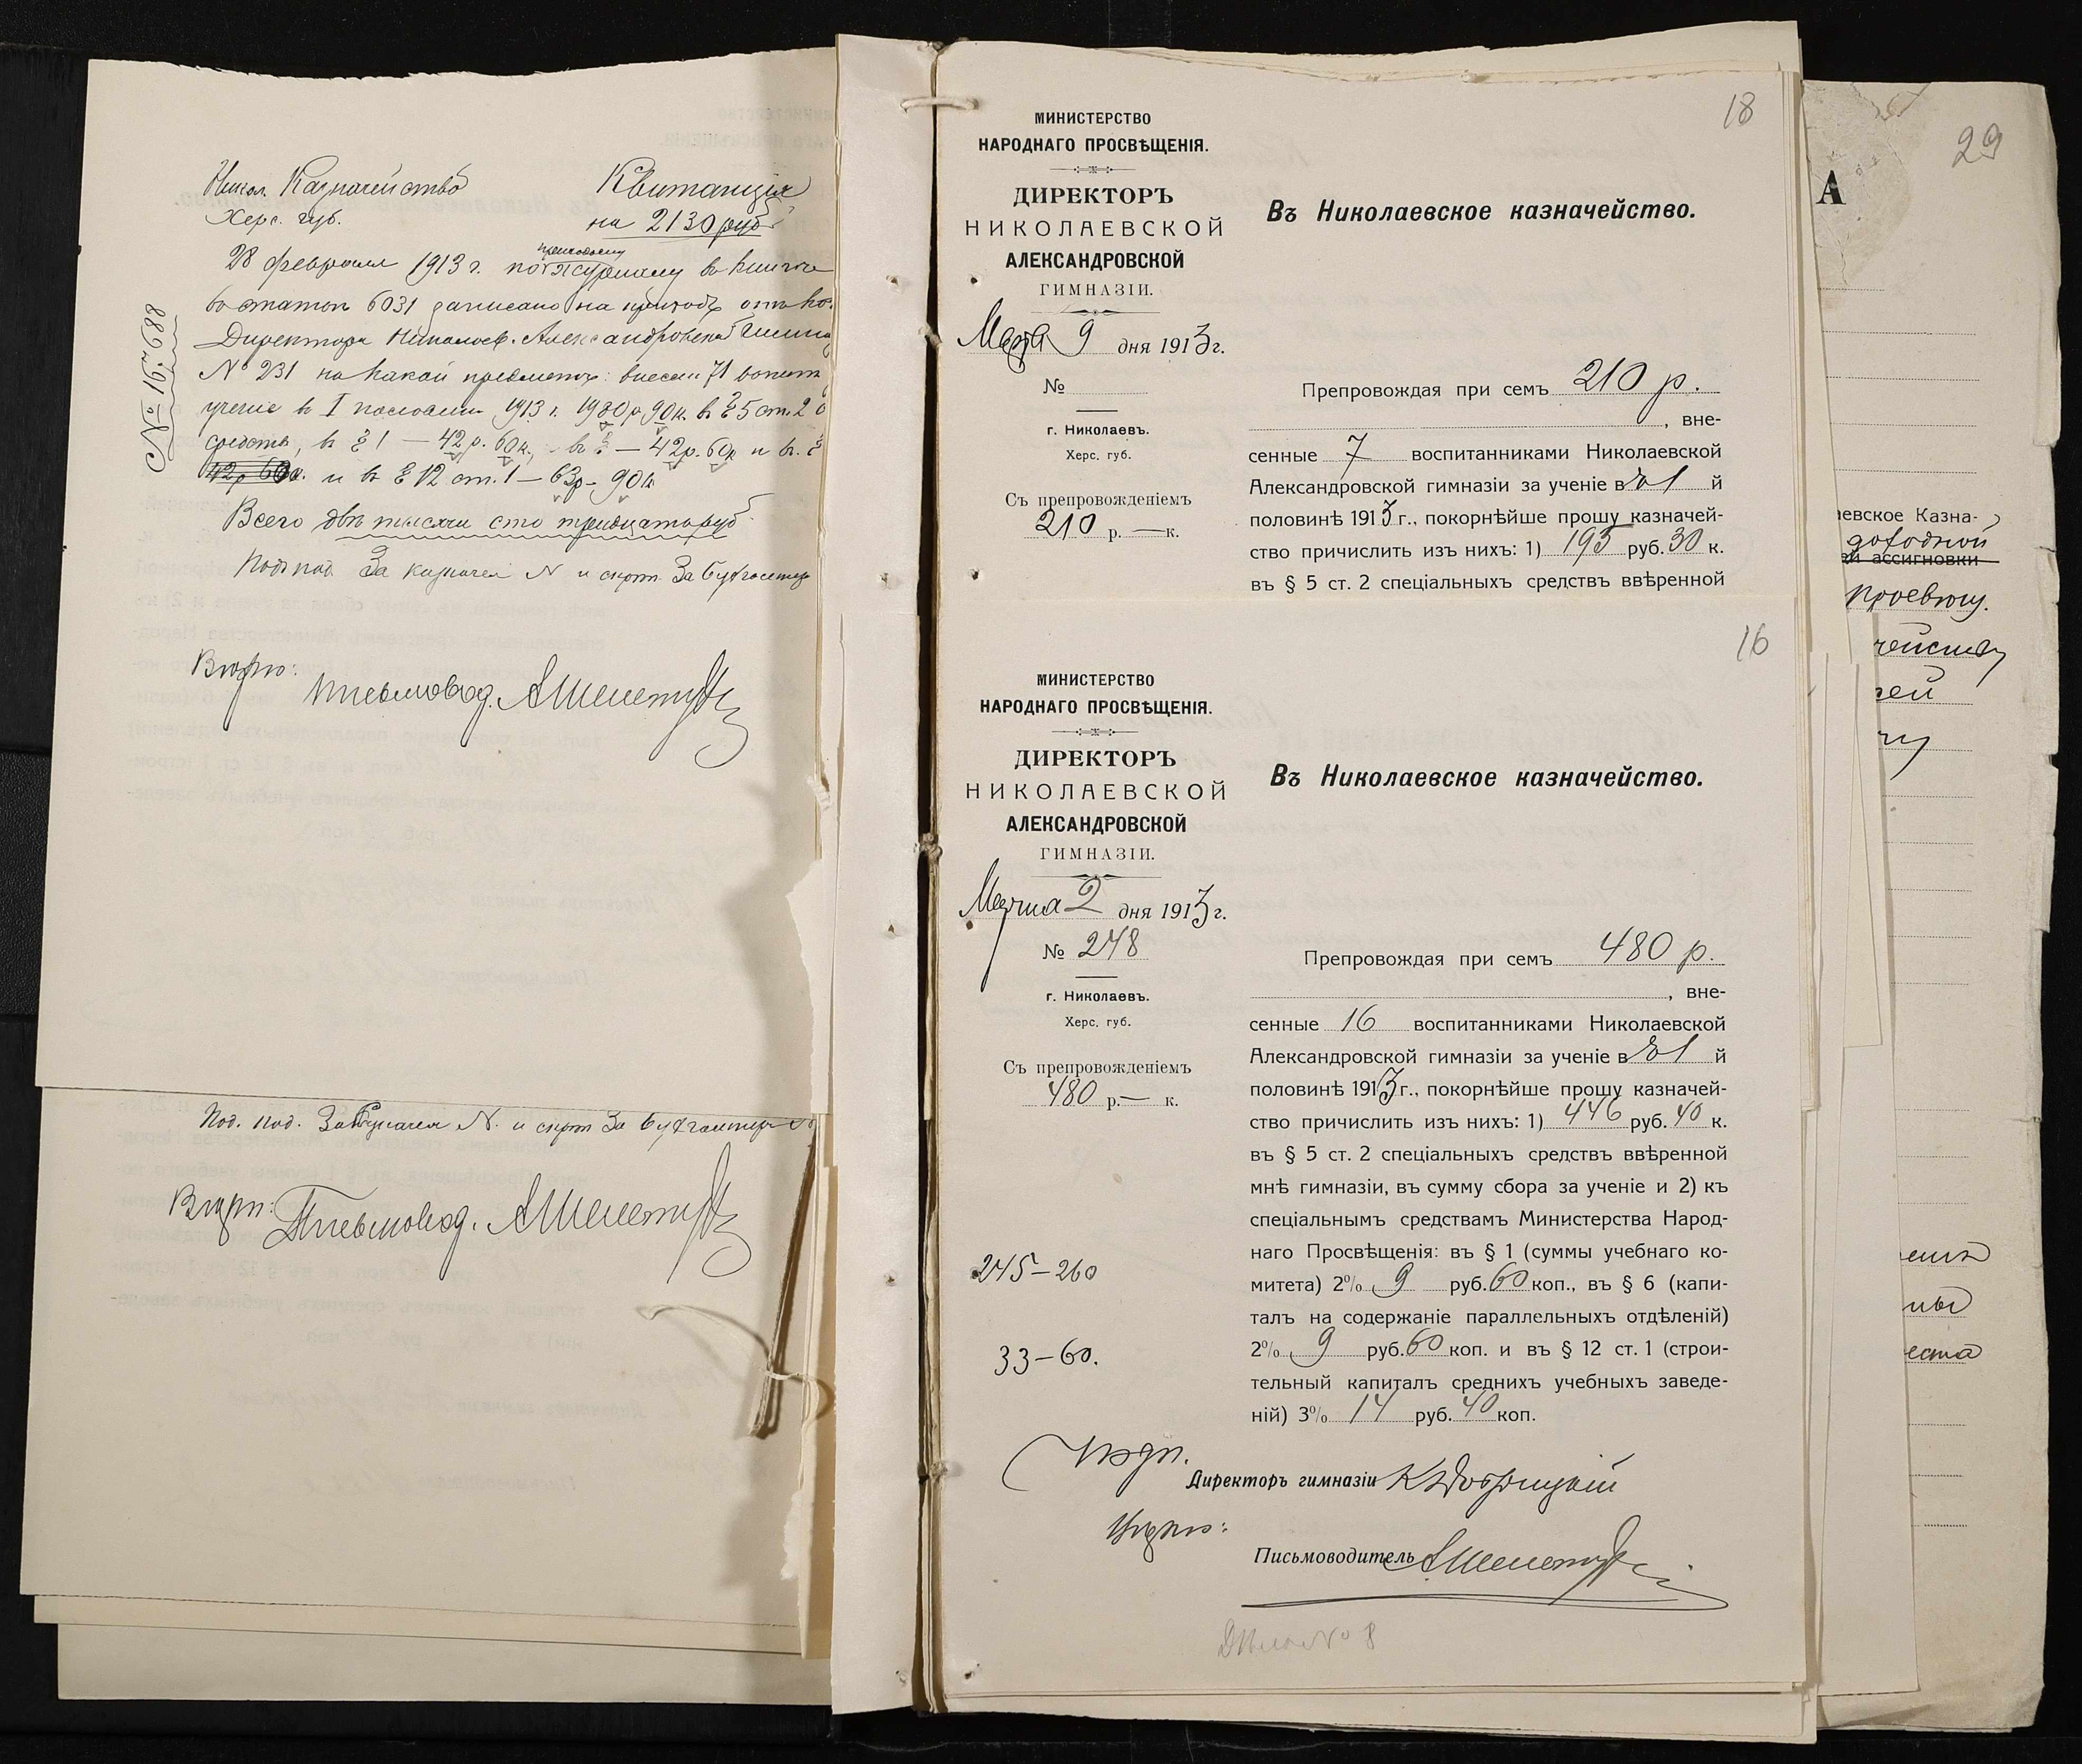 Никол. Казначейство
Херс. губ.
Квитанція
на 2130 руб
28 февраля 1913 г. по приходному журналу въ книгу
6031 записано на приходъ отъ
Директора Николаев. Александровской Гимна
№ 231 на какой предметъ: внесен 71
учение в I 1913 г. 1980 р. 90 к. в § 5 ст. 2
средств, в § 1 — 42 р. 60 к., в § — 42 р. 60 к и в. §
42 р 60 к. и в § 12 ст. 1 — 63 р — 90 к
Всего две тысячи сто тридцать руб
За казначея N и скрп. За бухгалтера
№ 167688
Вѣрно:
Письмовод. АШелет
Под. под. За Казначея N. и скрп За бухгалтера
Вѣрн:
Письмовод. АШелет
18
МИНИСТЕРСТВО
НАРОДНАГО ПРОСВѢЩЕНІЯ.
ДИРЕКТОРЪ
НИКОЛАЕВСКОЙ
АЛЕКСАНДРОВСКОЙ
ГИМНАЗІИ.
Марта 9 дня 1913 г.
№
г. Николаевъ.
Херс. губ.
Съ препровожденіемъ
210 р. — к.
Въ Николаевское казначейство.
Препровождая при семъ 210 р.
, вне-
сенные 7 воспитанниками Николаевской
Александровской гимназіи за ученіе въ 1 й
половинѣ 1913 г., покорнѣйше прошу казначей-
ство причислить изъ нихъ: 1) 195 руб. 30 к.
въ § 5 ст. 2 спеціальныхъ средствъ ввѣренной
16
МИНИСТЕРСТВО
НАРОДНАГО ПРОСВѢЩЕНІЯ.
ДИРЕКТОРЪ
НИКОЛАЕВСКОЙ
АЛЕКСАНДРОВСКОЙ
ГИМНАЗІИ.
Марта 2 дня 1913 г.
№ 248
г. Николаевъ.
Херс. губ.
Съ препровожденіемъ
480 р. — к.
245 – 260
33 – 60.
Въ Николаевское казначейство.
Препровождая при семъ 480 р.
, вне-
сенные 16 воспитанниками Николаевской
Александровской гимназіи за ученіе въ 1 й
половинѣ 1913 г., покорнѣйше прошу казначей-
ство причислить изъ нихъ: 1) 446 руб. 40 к.
въ § 5 ст. 2 спеціальныхъ средствъ ввѣренной
мнѣ гимназіи, въ сумму сбора за ученіе и 2) къ
спеціальнымъ средствамъ Министерства Народ-
наго Просвѣщенія: въ § 1 (суммы учебнаго ко-
митета) 2% 9 руб. 60 коп., въ § 6 (капи-
талъ на содержаніе параллельныхъ отдѣленій)
2% 9 руб. 60 коп. и въ § 12 ст. 1 (строи-
тельный капиталъ среднихъ учебныхъ заведе-
ній) 3% 14 руб. 40 коп.
Подп.
Директоръ гимназіи
Вѣрно:
Письмоводитель АШелет
Дѣло № 8
29
А
аевское Казна-
доходной
й ассигновки